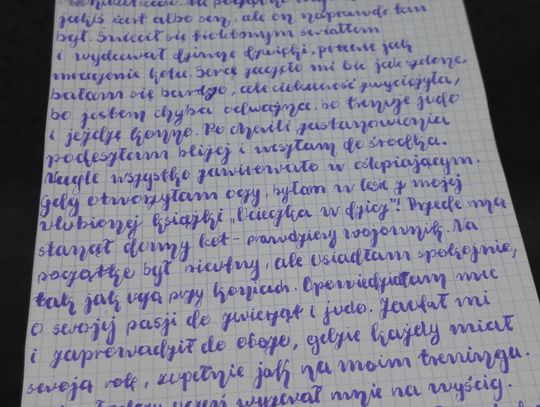 jakiś żart albo sen, ale on naprawdę tam
był. Świecił się fioletowym światłem
i wydawał dziwne dźwięki, prawie jak
mruczenie kota. Serce zaczęło mi bić jak szalone,
bałam się bardzo, ale ciekawość zwyciężyła,
bo jestem chyba odważna, bo trenuję judo
i jeżdżę konno. Po chwili zastanowienia
podeszłam bliżej i weszłam do środka.
Nagle wszystko zawirowało w oślepiającym.
gdy otworzyłam oczy, byłam w lesie z mojej
ulubionej książki „Ucieczka w dzicz"! Przede mną
stanął dumny kot - prawdziwy wojownik. Na
początku był nieufny, ale usiadłam spokojnie,
tak jak uczą przy koniach. Opowiedziałam mu
o swojej pasji do zwierząt i judo. Zaufał mi
i zaprowadził do obozu, gdzie każdy miał
swoją rolę, zupełnie jak na moim treningu.
wyzwał mnie na wyścig.